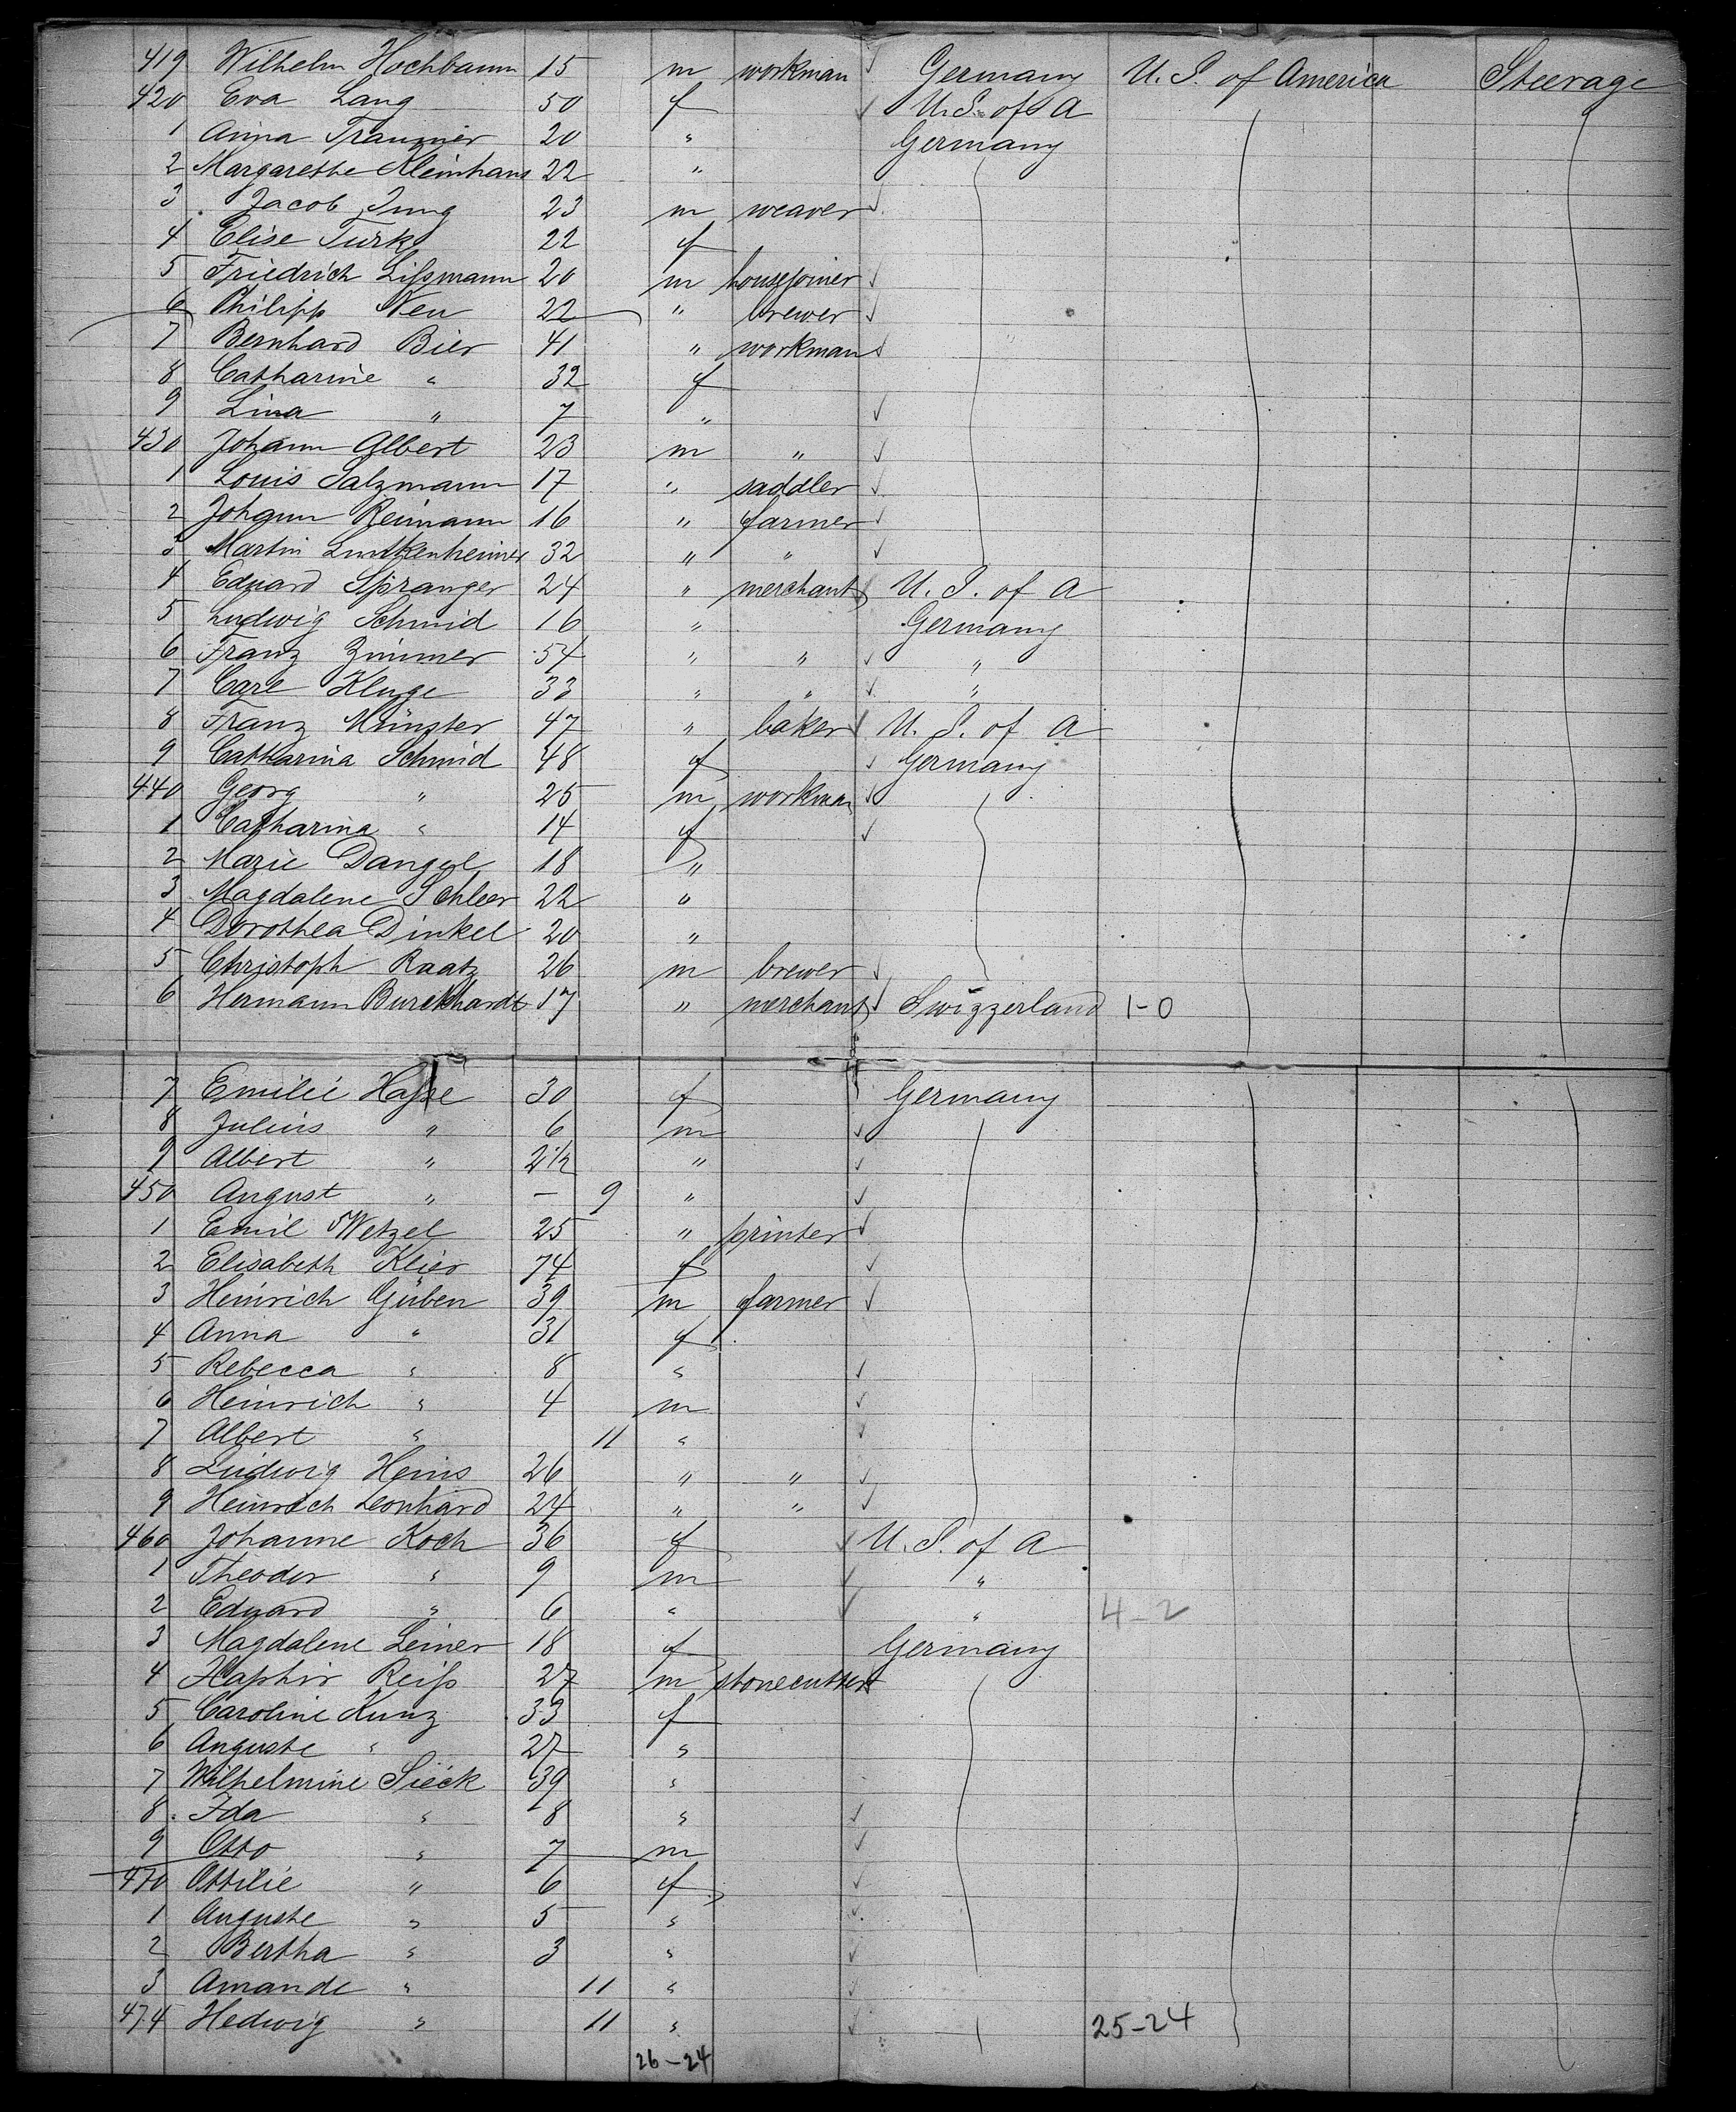 419 Wilhelm Hochbaum 15 m workman ✓ Germany U. S. of America Steerage
420 Eva Lang 50 f ✓ U. S. of A
1 Anna Traumer 20 " Germany
2 Margarethe Kleinhans 22 "
3 Jacob Jung 23 m weaver ✓
4 Elise Türk 22 f
5 Friedrich Lißmann 20 m housejoiner ✓
6 Philipp Neu 22 " brewer ✓
7 Bernhard Bier 41 " workman ✓
8 Catharine " 32 f
9 Lina " 7 " ✓
430 Johann Albert 23 m " ✓
1 Louis Salzmann 17 " saddler ✓
2 Johann Reimann 16 " farmer ✓
3 Martin 32 " " ✓
4 Eduard Spranger 24 " merchant ✓ U. S. of A
5 Ludwig Schmid 16 " Germany
6 Franz Zimmer 54 " " ✓ "
7 Carl Kluge 33 " " ✓ "
8 Franz Münster 47 " baker ✓ U. S. of A
9 Catharina Schmid 48 f ✓ Germany
440 Georg " 25 m workman ✓
1 Catharina " 14 f ✓
2 Marie Dangel 18 "
3 Magdalene Schleer 22 "
4 Dorothea Dinkel 20 "
5 Christoph Raatz 26 m brewer ✓
6 Hermann Burckhardt 17 " merchant ✓ Swizzerland 1-0
7 Emilie Haße 30 f Germany
8 Julius " 6 m ✓
9 Albert " 2 1/2 " ✓
450 August " – 9 " ✓
1 Emil Wetzel 25 " printer ✓
2 Elisabeth Klier 74 f ✓
3 Heinrich Güben 39 m farmer ✓
4 Anna " 31 f
5 Rebecca " 8 " ✓
6 Heinrich " 4 m ✓
7 Albert " 11 " ✓
8 Ludwig Heins 26 " " ✓
9 Heinrich Leonhard 24 " " ✓
460 Johanne Koch 36 f ✓ U. S. of A
1 Theodor " 9 m ✓ "
2 Eduard " 6 " ✓ " 4-2
3 Magdalene Leiner 18 f Germany
4 Reiß 27 m stonecutter ✓
5 Caroline Kunz 33 f
6 Auguste " 27 "
7 Wilhelmine Sieck 39 "
8 Ida " 8 " ✓
9 Otto " 7 m ✓
470 Ottilie " 6 f ✓
1 Auguste " 5 " ✓
2 Bertha " 3 " ✓
3 Amande " 11 " ✓
474 Hedwig " 11 " ✓ 25-24
26-24